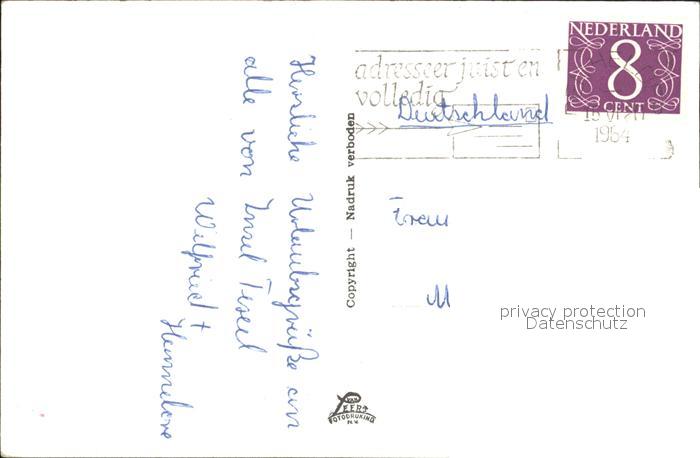 Herzliche Urlaubsgrüße an
alle von Insel Texel
Wilfried +
Hannelore
Copyright — Nadruk verboden
VAN
LEER'S
FOTODRUKINDŸ
N.V.
adresseer juist en
volledig
NEDERLAND
8
CENT
1964
Deutschland
Frau
M
privacy protection
Datenschutz